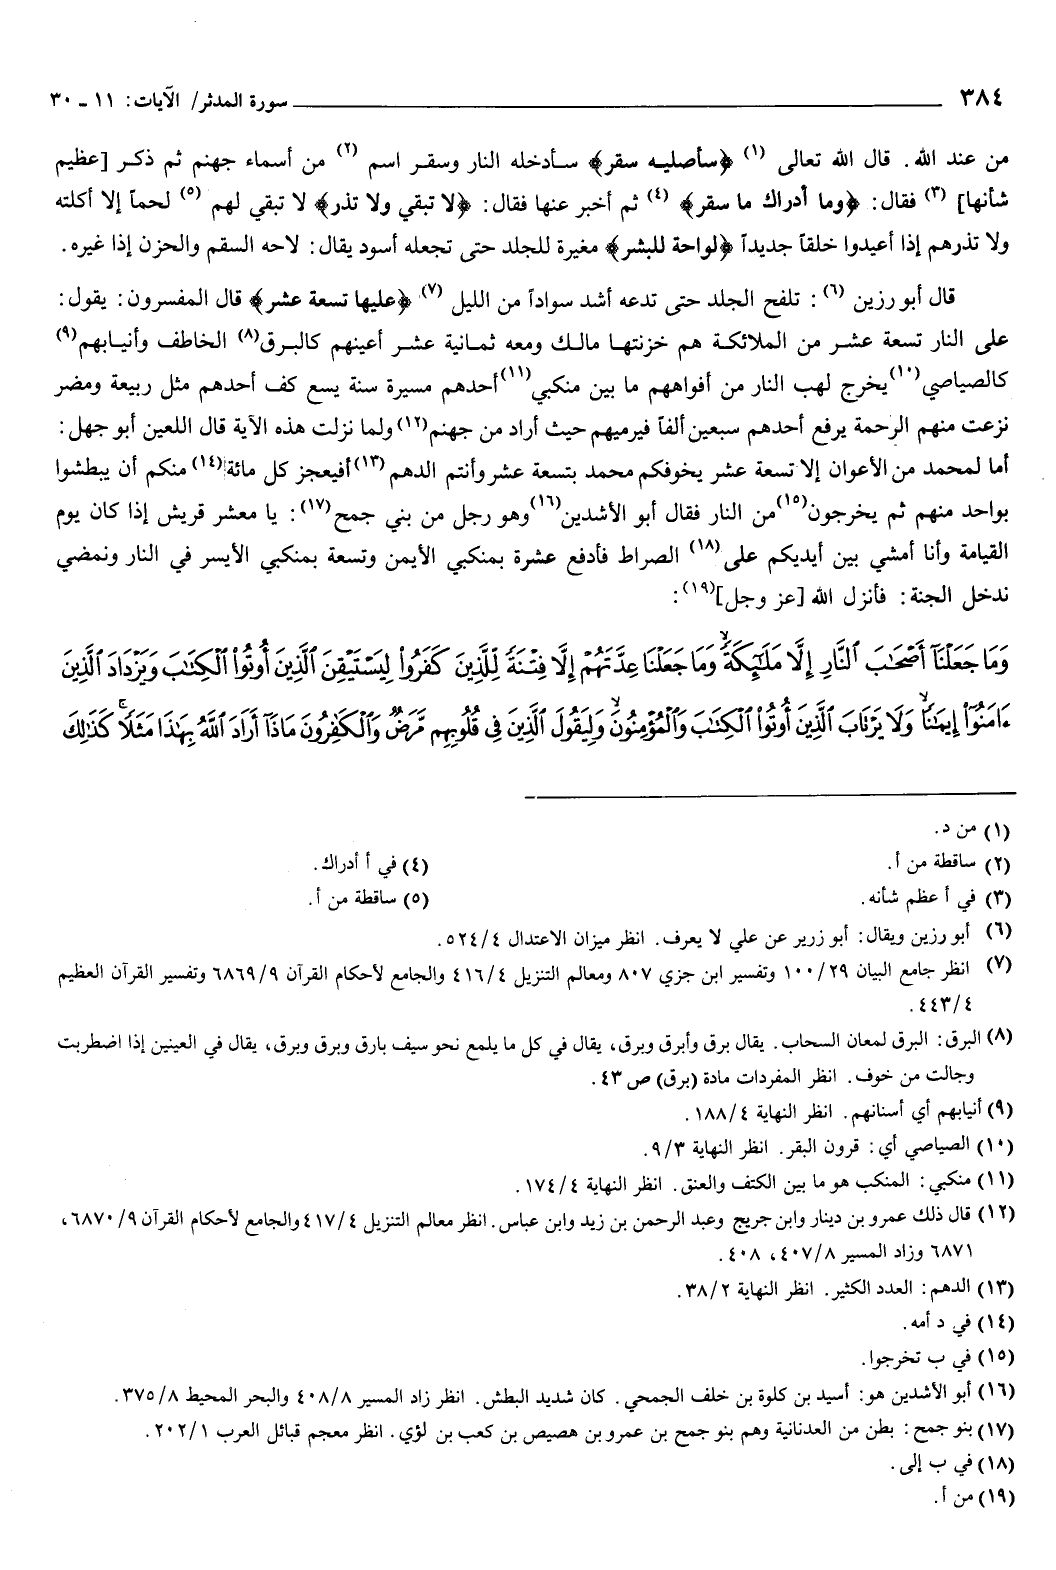 ٣٨٤ سورة المدثر/ الآيات: ١١ - ٣٠
من عند الله. قال الله تعالى (١) ﴿سأصليه سقر﴾ سأدخله النار وسقر اسم (٢) من أسماء جهنم ثم ذكر [عظيم
شأنها] (٣) فقال: ﴿وما أدراك ما سقر﴾ (٤) ثم أخبر عنها فقال: ﴿لا تبقي ولا تذر﴾ لا تبقي لهم (٥) لحماً إلا أكلته
ولا تذرهم إذا أعيدوا خلقاً جديداً ﴿لواحة للبشر﴾ مغيرة للجلد حتى تجعله أسود يقال: لاحه السقم والحزن إذا غيره.
قال أبو رزين (٦) : تلفح الجلد حتى تدعه أشد سواداً من الليل (٧) ﴿عليها تسعة عشر﴾ قال المفسرون: يقول:
على النار تسعة عشر من الملائكة هم خزنتها مالك ومعه ثمانية عشر أعينهم كالبرق(٨) الخاطف وأنيابهم(٩)
كالصياصي(١٠) يخرج لهب النار من أفواههم ما بين منكبي(١١) أحدهم مسيرة سنة يسع كف أحدهم مثل ربيعة ومضر
نزعت منهم الرحمة يرفع أحدهم سبعين ألفاً فيرميهم حيث أراد من جهنم(١٢) ولما نزلت هذه الآية قال اللعين أبو جهل:
أما لمحمد من الأعوان إلا تسعة عشر يخوفكم محمد بتسعة عشر وأنتم الدهم(١٣) أفيعجز كل مائة(١٤) منكم أن يبطشوا
بواحد منهم ثم يخرجون(١٥) من النار فقال أبو الأشدين(١٦) وهو رجل من بني جمح(١٧): يا معشر قريش إذا كان يوم
القيامة وأنا أمشي بين أيديكم على(١٨) الصراط فأدفع عشرة بمنكبي الأيمن وتسعة بمنكبي الأيسر في النار ونمضي
ندخل الجنة: فأنزل الله [عز وجل](١٩):
وَمَا جَعَلْنَآ أَصْحَٰبَ ٱلنَّارِ إِلَّا مَلَٰٓئِكَةً ۙ وَمَا جَعَلْنَا عِدَّتَهُمْ إِلَّا فِتْنَةً لِّلَّذِينَ كَفَرُوا۟ لِيَسْتَيْقِنَ ٱلَّذِينَ أُوتُوا۟ ٱلْكِتَٰبَ وَيَزْدَادَ ٱلَّذِينَ
ءَامَنُوٓا۟ إِيمَٰنًا ۙ وَلَا يَرْتَابَ ٱلَّذِينَ أُوتُوا۟ ٱلْكِتَٰبَ وَٱلْمُؤْمِنُونَ ۙ وَلِيَقُولَ ٱلَّذِينَ فِى قُلُوبِهِم مَّرَضٌ وَٱلْكَٰفِرُونَ مَاذَآ أَرَادَ ٱللَّهُ بِهَٰذَا مَثَلًا ۚ كَذَٰلِكَ
(١) من د.
(٢) ساقطة من أ. (٤) في أ أدراك.
(٣) في أ عظم شأنه. (٥) ساقطة من أ.
(٦) أبو رزين ويقال: أبو زرير عن علي لا يعرف. انظر ميزان الاعتدال ٥٢٤/٤.
(٧) انظر جامع البيان ١٠٠/٢٩ وتفسير ابن جزي ٨٠٧ ومعالم التنزيل ٤١٦/٤ والجامع لأحكام القرآن ٦٨٦٩/٩ وتفسير القرآن العظيم
٤٤٣/٤.
(٨) البرق: البرق لمعان السحاب. يقال برق وأبرق وبرق، يقال في كل ما يلمع نحو سيف بارق وبرق وبرق، يقال في العينين إذا اضطربت
وجالت من خوف. انظر المفردات مادة (برق) ص ٤٣.
(٩) أنيابهم أي أسنانهم. انظر النهاية ١٨٨/٤.
(١٠) الصياصي أي: قرون البقر. انظر النهاية ٩/٣.
(١١) منكبي: المنكب هو ما بين الكتف والعنق. انظر النهاية ١٧٤/٤.
(١٢) قال ذلك عمرو بن دينار وابن جريج وعبد الرحمن بن زيد وابن عباس. انظر معالم التنزيل ٤١٧/٤ والجامع لأحكام القرآن ٦٨٧٠/٩،
٦٨٧١ وزاد المسير ٤٠٧/٨، ٤٠٨.
(١٣) الدهم: العدد الكثير. انظر النهاية ٣٨/٢.
(١٤) في د أمه.
(١٥) في ب تخرجوا.
(١٦) أبو الأشدين هو: أسيد بن كلوة بن خلف الجمحي. كان شديد البطش. انظر زاد المسير ٤٠٨/٨ والبحر المحيط ٣٧٥/٨.
(١٧) بنو جمح: بطن من العدنانية وهم بنو جمح بن عمرو بن هصيص بن كعب بن لؤي. انظر معجم قبائل العرب ٢٠٢/١.
(١٨) في ب إلى.
(١٩) من أ.